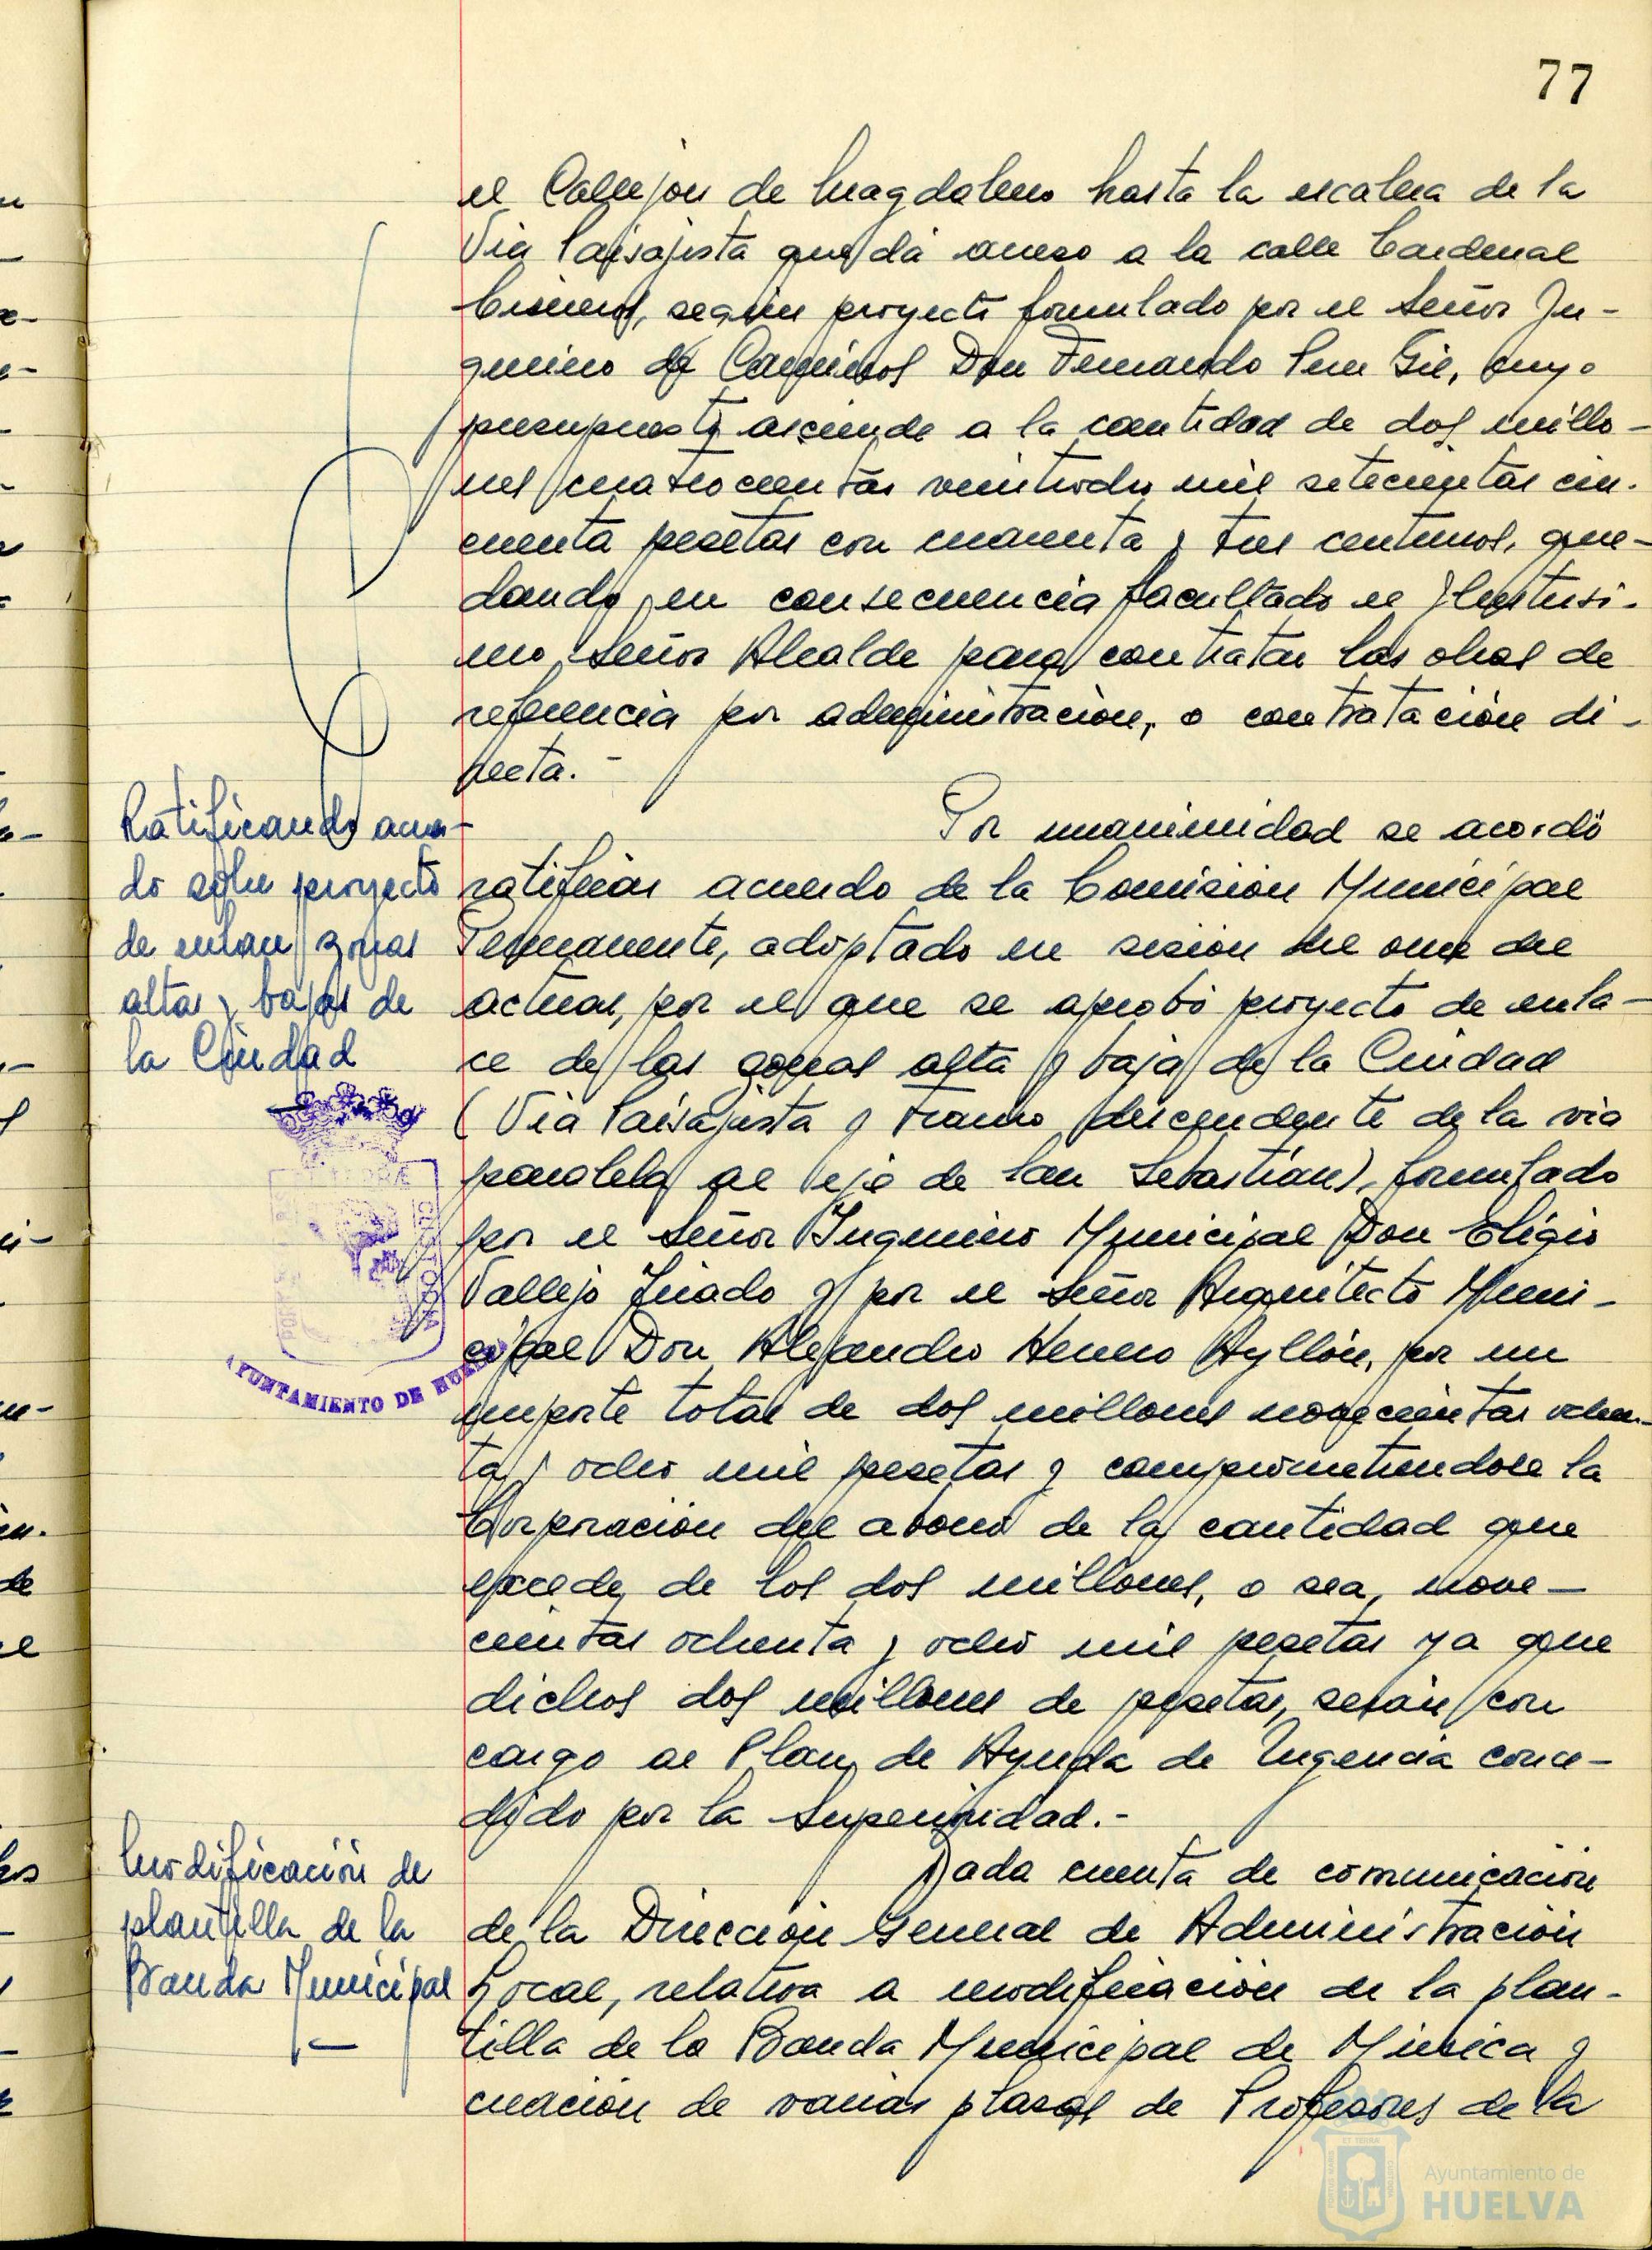 77
el Callejon de Magdaleno hasta la escalera de la
Via Paisajista que dá acceso a la calle Cardenal
Cisneros, según proyecto formulado por el Señor In-
geniero de Caminos Don Fernando Gil, cuyo
presupuesto asciende a la cantidad de dos millo-
nes cuatrocientas veintiocho mil setecientas cin-
cuenta pesetas con y tres centimos, que-
dando en consecuencia facultado el Ilustrisi-
mo Señor Alcalde para contratar las obras de
referencia por administración, o contratación di-
recta.-
Ratificando acuer-
do sobre proyecto
de enlace zonas
altas y bajas de
la Ciudad
Por unanimidad se acordó
ratificar acuerdo de la Comisión Municipal
Permanente, adoptado en sesión del once del
actual, por el que se aprobó proyecto de enla-
ce de las zonas alta y baja de la Ciudad
(Via Paisajista y tramo descendente de la via
paralela al eje de San Sebastián), formulado
por el Señor Ingeniero Municipal Don Eligio
Vallejo Jurado y por el Señor Arquitecto Muni-
cipal Don Alejandro Herrero Ayllón, por un
importe total de dos millones novecientas ochen-
ta y ocho mil pesetas y comprometiendose la
Corporación del abono de la cantidad que
excede de los dos millones, o sea, nove-
cientas ochenta y ocho mil pesetas ya que
dichos dos millones de pesetas, serán con
cargo al Plan de Ayuda de Urgencia conce-
dido por la Superioridad.-
AYUNTAMIENTO DE HUELVA
Modificación de
plantilla de la
Banda Municipal
Dada cuenta de comunicación
de la Dirección General de Administración
Local, relativa a modificación de la plan-
tilla de la Banda Municipal de Música y
creación de varias plazas de Profesores de la
Ayuntamiento de
HUELVA